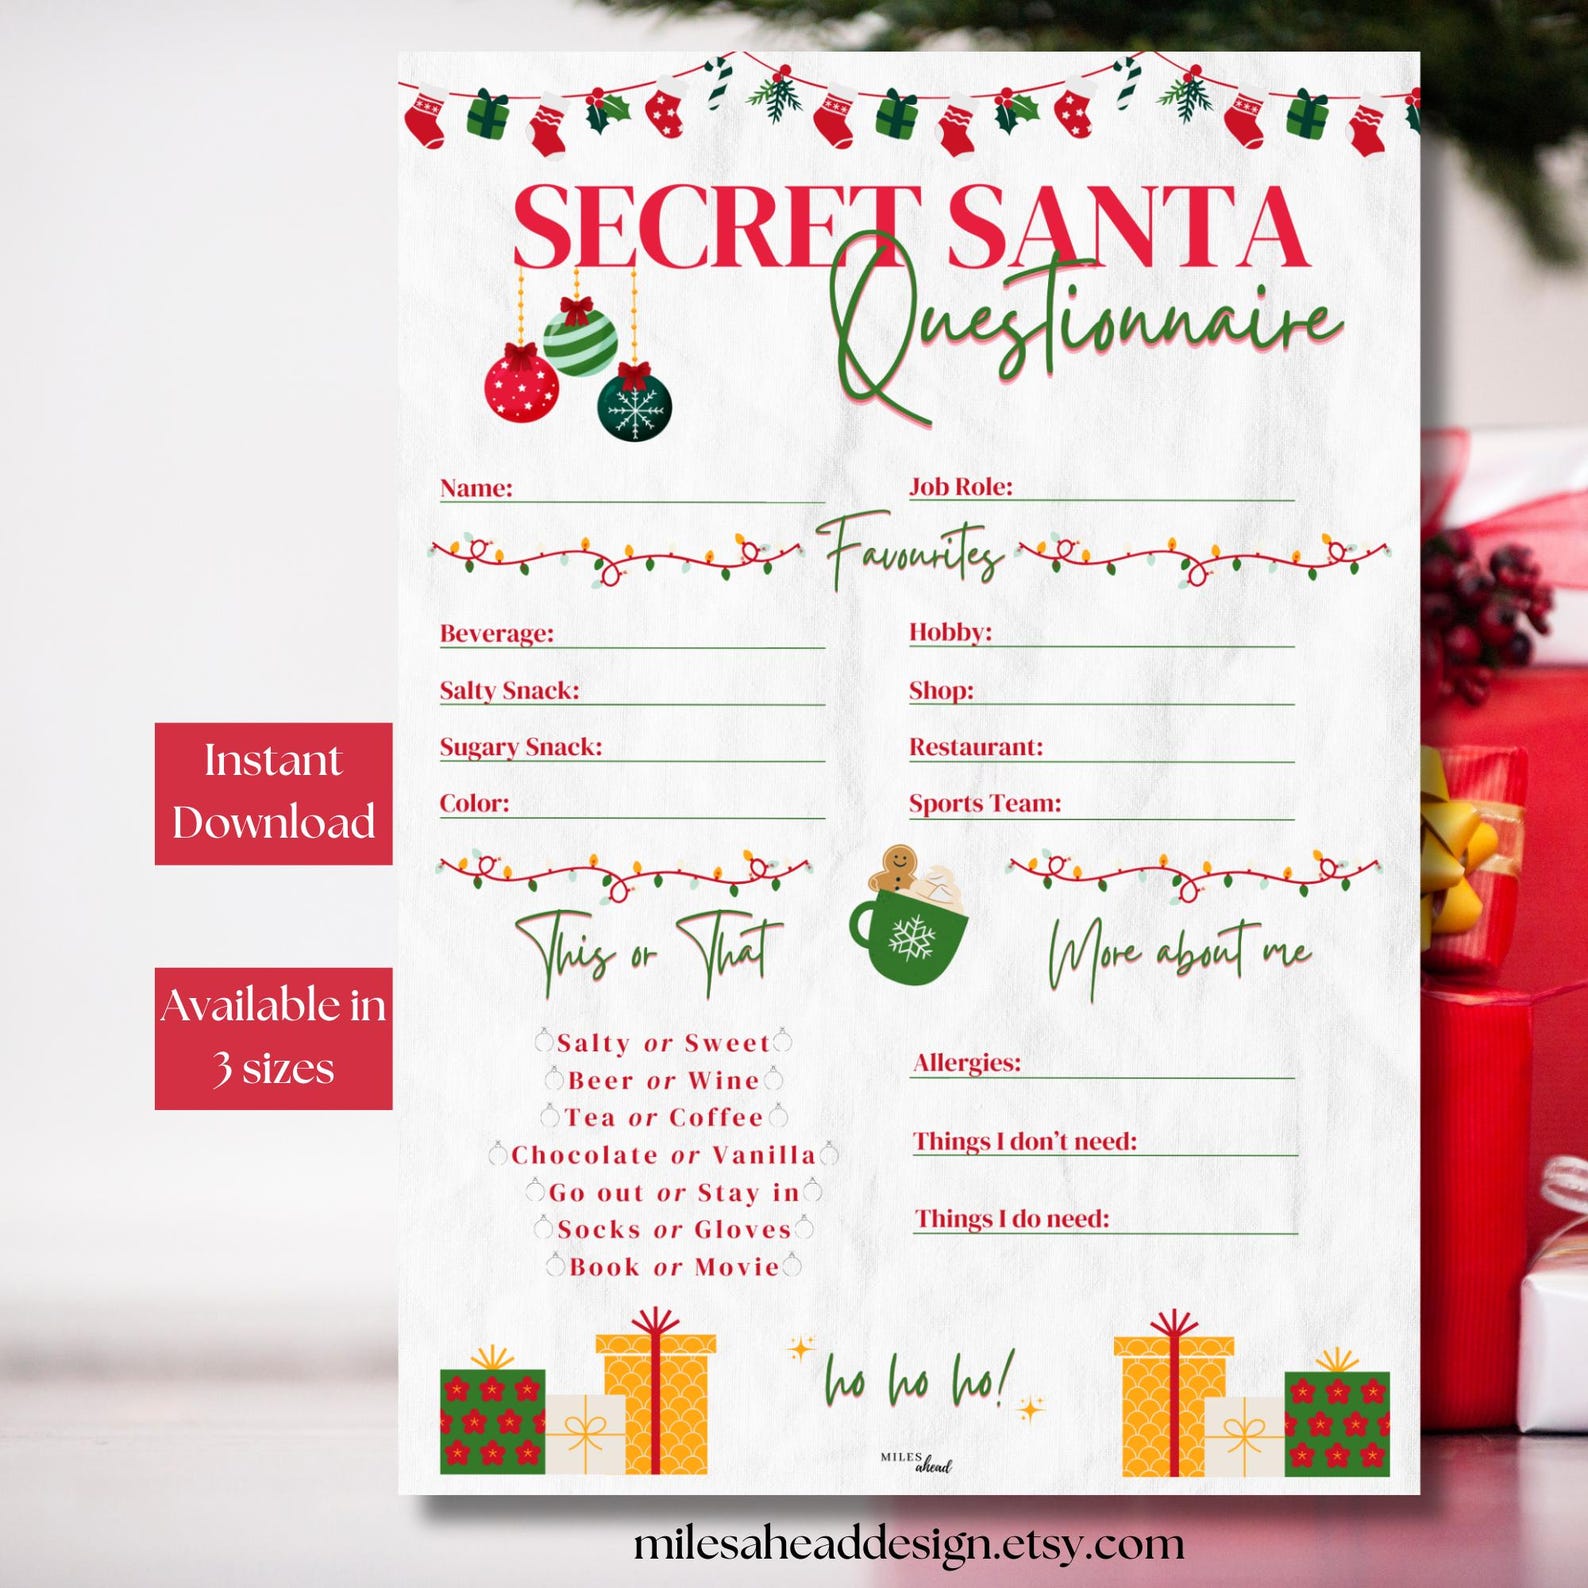 SECRET SANTA
Questionnaire
Name:
Job Role:
Favourites
Beverage:
Hobby:
Salty Snack:
Shop:
Sugary Snack:
Restaurant:
Color:
Sports Team:
This or That
Salty or Sweet
Beer or Wine
Tea or Coffee
Chocolate or Vanilla
Go out or Stay in
Socks or Gloves
Book or Movie
More about me
Allergies:
Things I don't need:
Things I do need:
ho ho ho!
MILES
ahead
Instant
Download
Available in
3 sizes
milesaheaddesign.etsy.com